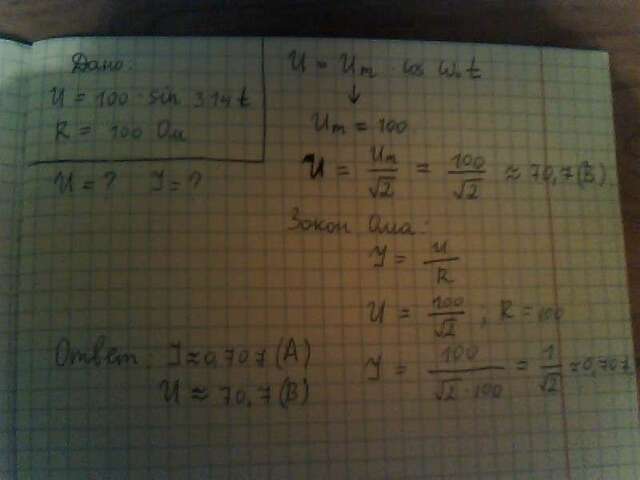 Дано:
U = 100 · sin 314 t
R = 100 Ом
U = ? I = ?
U = Um · cos ω₀ t
↓
Um = 100
U = Um/√2 = 100/√2 ≈ 70,7 (В)
Закон Ома:
I = U/R
U = 100/√2 ; R = 100
I = 100/√2 · 100 = 1/√2 ≈ 0,707
Ответ: I ≈ 0,707 (А)
U ≈ 70,7 (В)